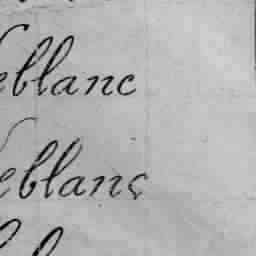 eblanc
eblanc